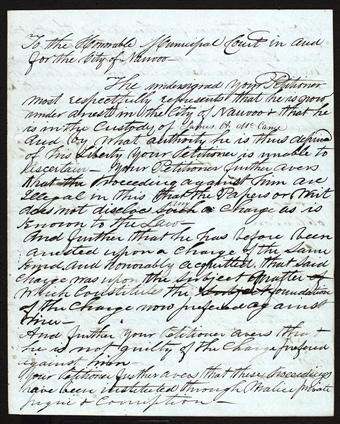 To the Honorable Municipal Court in and
for the City of Nauvoo—
The undersigned Your Petitioner
most respectfully represents that he is now
under arrest in the City of Nauvoo & that he
is in the Custody of James
And by what authority he is thus deprived
of his Liberty Your Petitioner is unable to
ascertain— Your Petitioner further avers
that the Proceeding against him are
Illegal in this that the Papers or Writ
does not disclose such a Charge as is
Known to the Law—
And further that he has before been
arrested upon a Charge of the Same
kind and honorably acquitted, that said
Charge was upon the same matter
which constitute the foundation
of the Charge now preferred against
him—
And further Your Petitioner avers that
he is not guilty of the Charge preferred
against him
Your Petitioner further avers that these proceedings
have been instituted through Malice private
pique & Corruption—